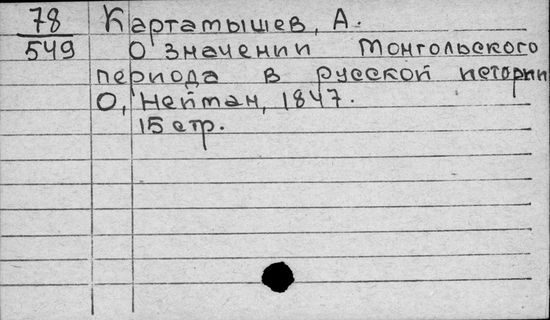 78 Картамышев, А.
549 О значении монгольского
периода в русской истории
О, Нейтман, 1847.
15 стр.